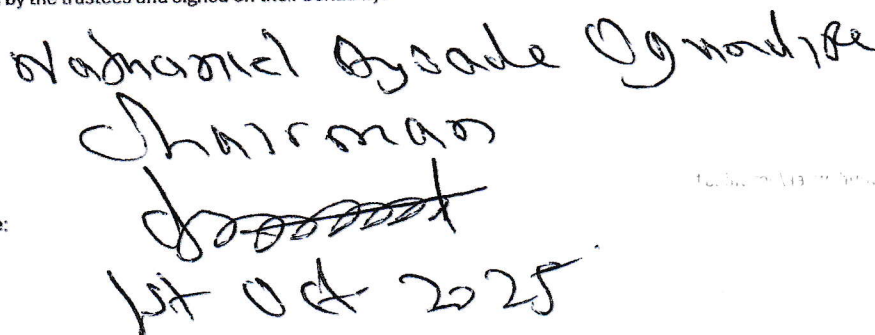 by the trustees and signed on their behalf by
Nathaniel Ayoade Ogundipe
Chairman
e:
1st Oct 2025